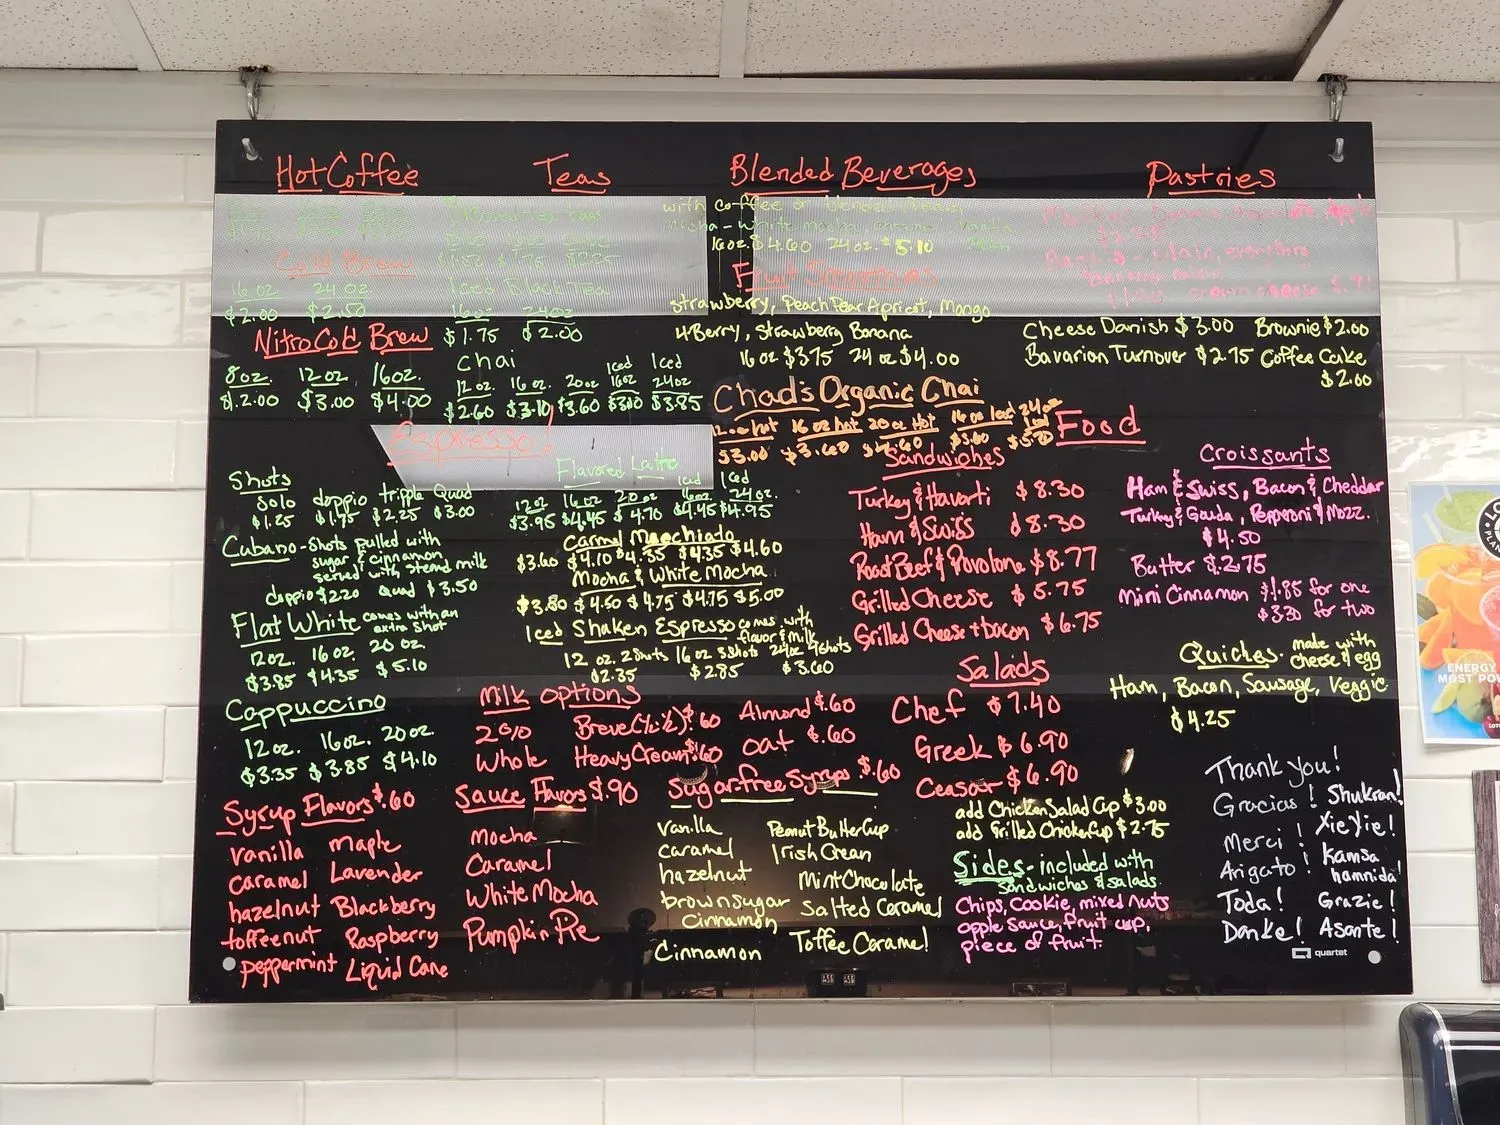 Hot Coffee
Cold Brew
16 oz 24 oz
$2.00 $2.50
Nitro Cold Brew
8oz. 12oz. 16oz.
$2.00 $3.00 $4.00
Teas
Iced Black Tea
16oz 24oz
$1.75 $2.00
Chai
12oz. 16oz. 20oz Iced 16oz Iced 24oz
$2.60 $3.10 $3.60 $3.10 $3.85
Espresso!
Shots
Solo doppio tripple Quad
$1.25 $1.75 $2.25 $3.00
Cubano - Shots pulled with
sugar & cinnamon
served with stemd milk
doppio $2.20 Quad $3.50
Flat White comes with an
extra shot
12oz. 16oz. 20oz
$3.85 $4.35 $5.10
Cappuccino
12oz. 16oz. 20oz.
$3.35 $3.85 $4.10
Flavored Latte
12oz 16oz 20oz Iced 16oz Iced 24oz.
$3.95 $4.45 $4.70 $4.45 $4.95
Carmel Macchiado
$3.60 $4.10 $4.35 $4.35 $4.60
Mocha & White Mocha
$4.50 $4.75 $4.75 $5.00
Iced Shaken Espresso comes with
flavor & milk
12 oz. 2 Shots 16 oz 3 Shots 24oz 4 Shots
$2.35 $2.85 $3.60
Blended Beverages
with coffee or blended
Mocha - White mocha, caramel,
16oz. $4.60 24oz. $5.10
Fruit Smoothies
Strawberry, Peach Pear Apricot, Mango
4 Berry, Strawberry Banana
16 oz $3.75 24 oz $4.00
Chad's Organic Chai
16oz hot 20oz Hot 16oz Iced 24oz Iced
$3.00 $3.60
Pastries
Cheese Danish $3.00 Brownie $2.00
Bavarian Turnover $2.75 Coffee Cake
$2.00
Food
Sandwiches
Turkey & Havarti $8.30
Ham & Swiss $8.30
Roast Beef & Provolone $8.77
Grilled Cheese $5.75
Grilled Cheese + bacon $6.75
Croissants
Ham & Swiss, Bacon & Cheddar
Turkey & Gouda, Pepperoni & Mozz.
$4.50
Butter $2.75
Mini Cinnamon $1.85 for one
$3.30 for two
Quiches - made with
cheese & egg
Ham, Bacon, Sausage, Veggie
$4.25
Salads
Chef $7.40
Greek $6.90
Ceasar $6.90
add Chicken Salad Cup $3.00
add Grilled Chicken Cup $2.75
Sides - included with
sandwiches & salads
Chips, Cookie, mixed nuts
apple sauce, fruit cup,
piece of fruit.
Milk Options
2% Breve (½·½) $.60 Almond $.60
Whole Heavy Cream $.60 oat $.60
Syrup Flavors $.60
vanilla maple
caramel Lavender
hazelnut Blackberry
toffeenut Raspberry
peppermint Liquid Cane
Sauce Flavors $.90
Mocha
Caramel
White Mocha
Pumpkin Pie
Sugar-free Syrups $.60
vanilla Peanut Butter Cup
caramel Irish Cream
hazelnut Mint Chocolate
brown sugar Cinnamon Salted Caramel
Cinnamon Toffee Caramel
Thank you!
Gracias! Shukran!
Merci! Xie Xie!
Arigato! Kamsa hamnida!
Toda! Grazie!
Danke! Asante!
quartet
ENERGY